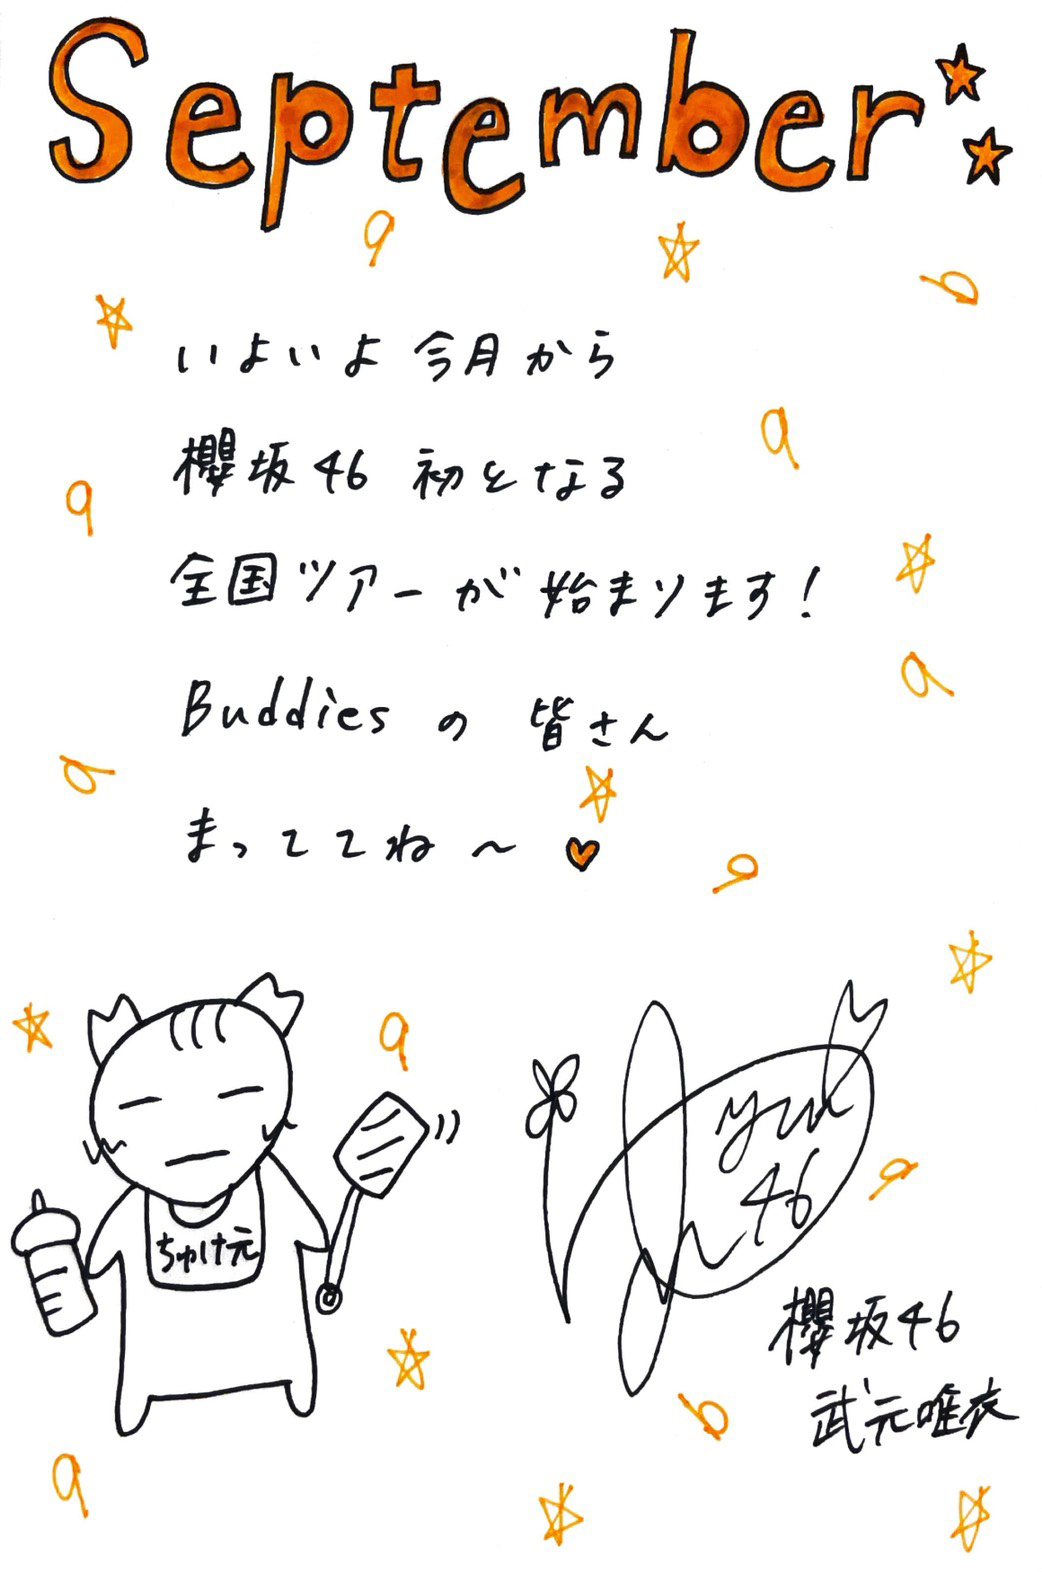 September
9
9
9
いよいよ 今月から
9
櫻坂46 初となる
9
全国ツアーが 始まります!
9
Buddies の 皆さん
9
まっててね〜
9
9
ちゅけ元
yui
46
9
櫻坂46
武元唯衣
9
9